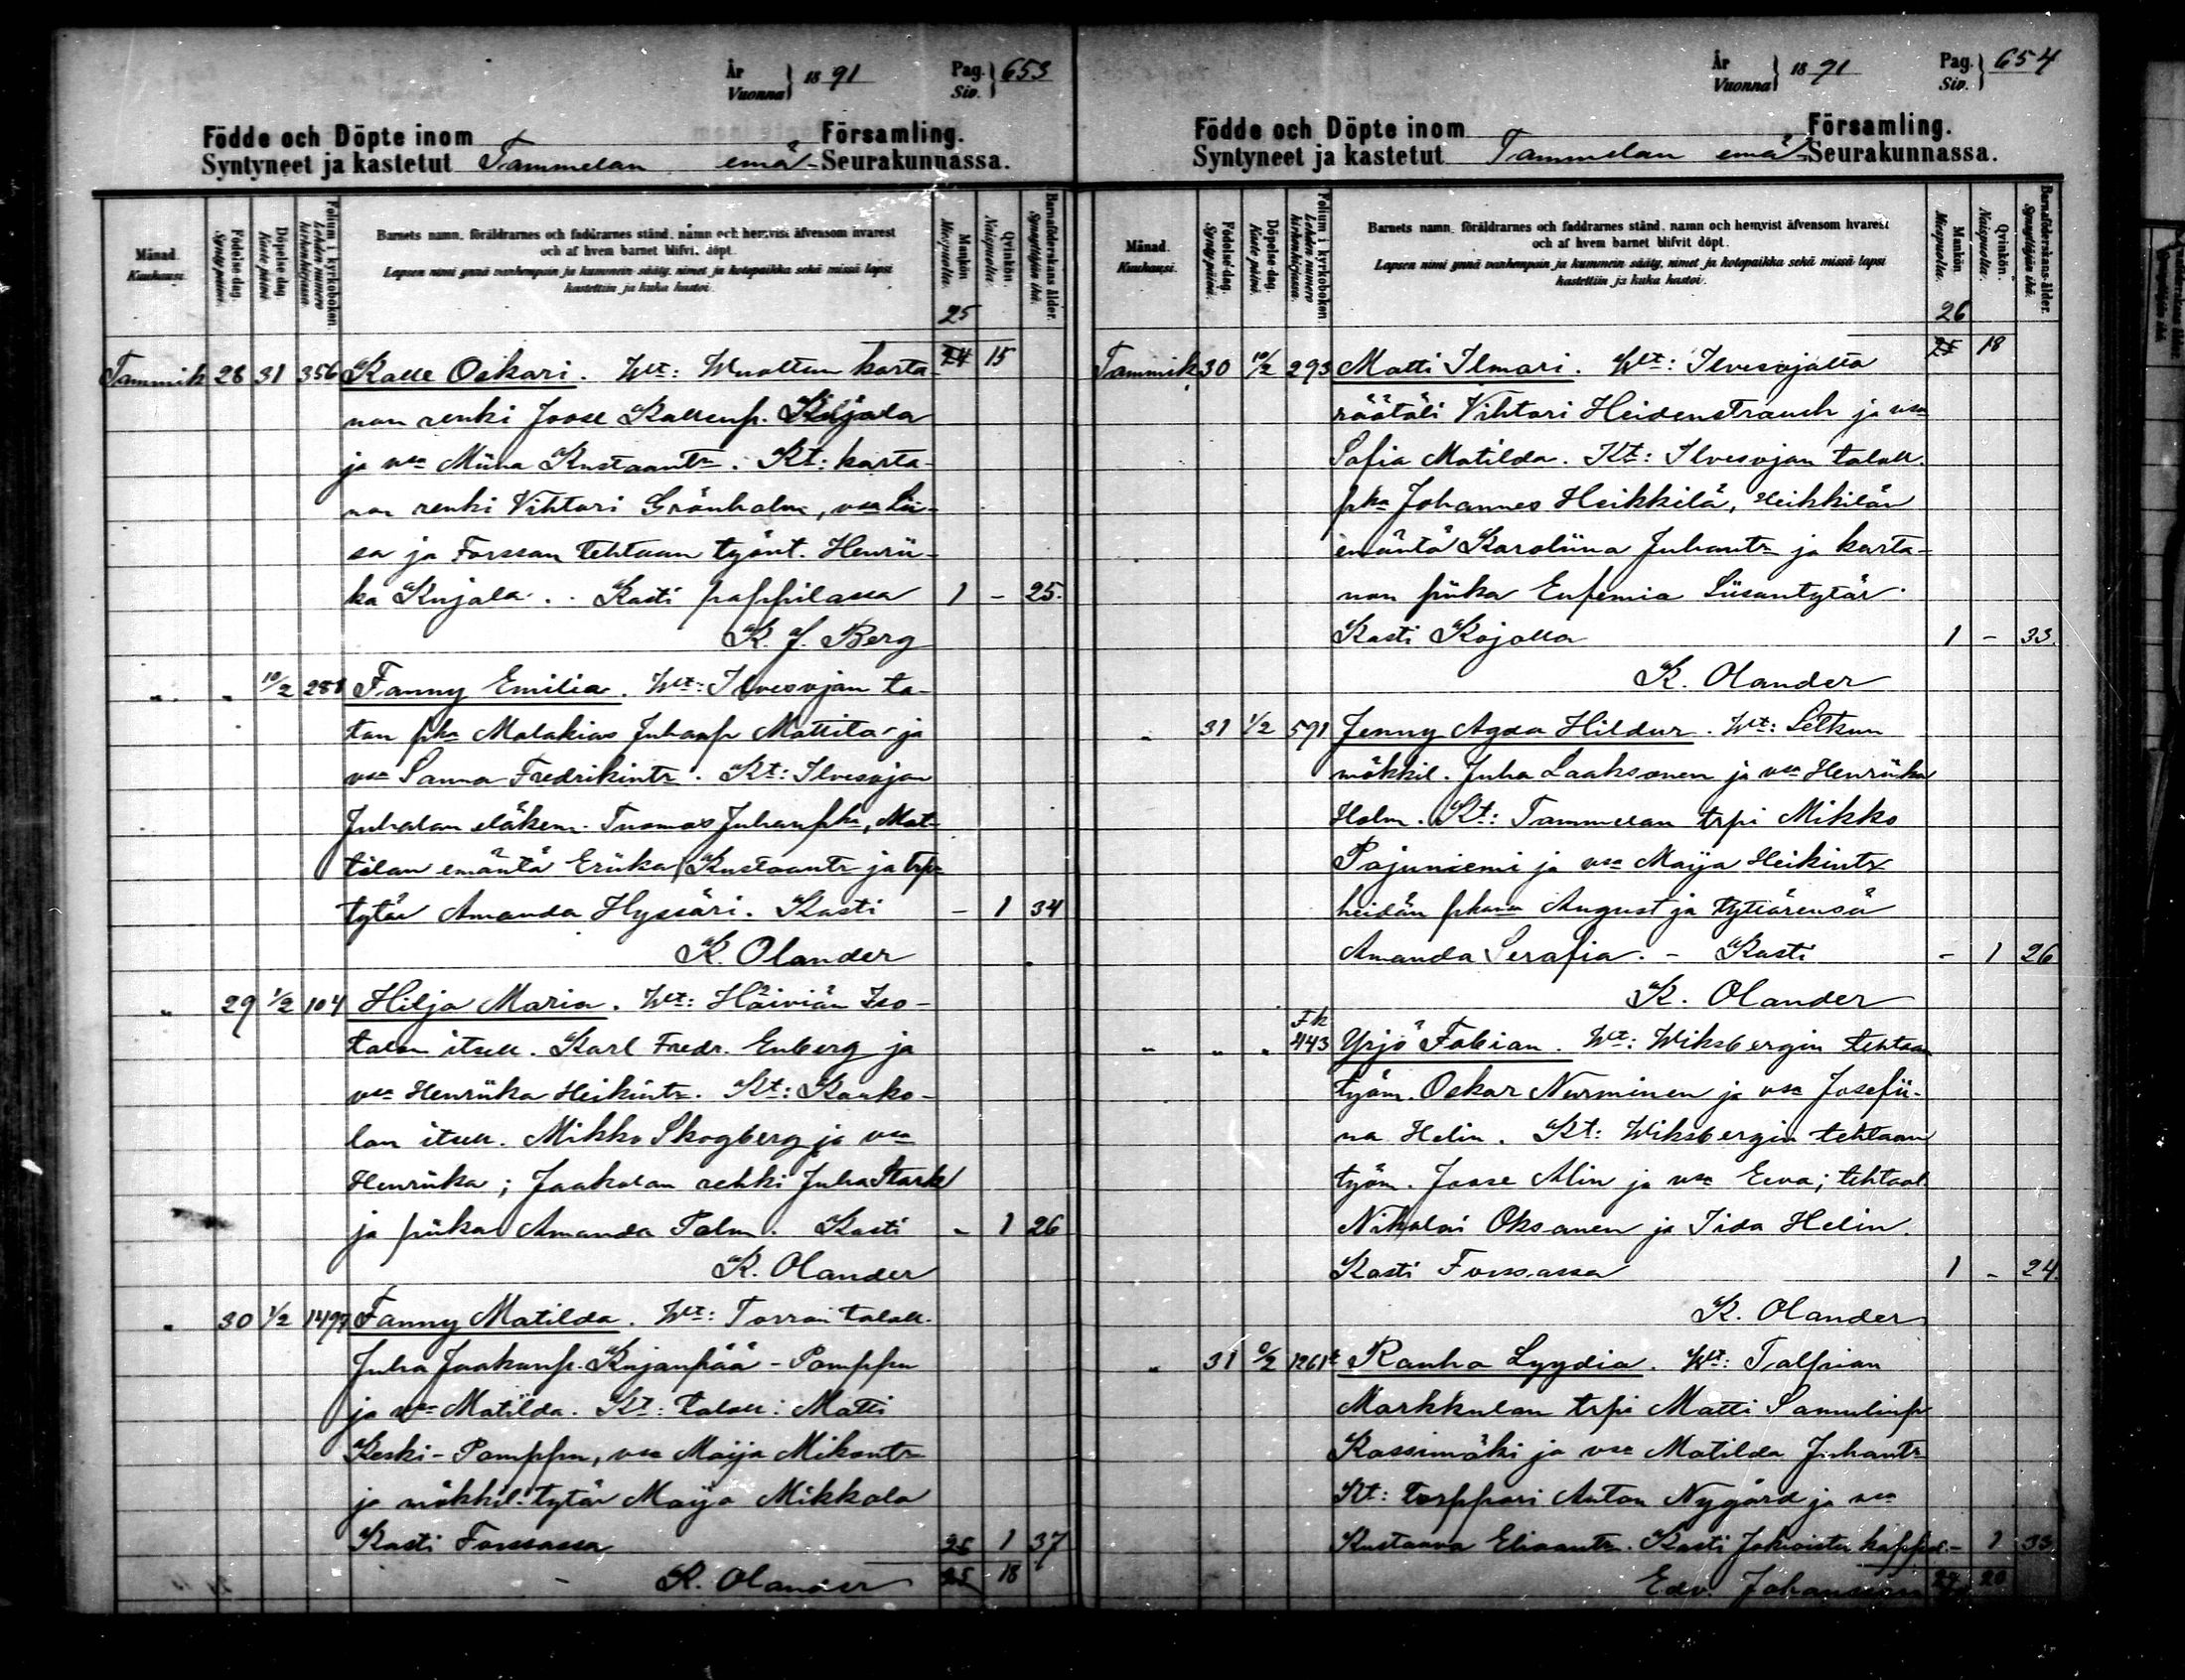 År Vuonna } 1891 Pag. Siv. } 653
Födde och Döpte inom Församling.
Syntyneet ja kastetut Tammelan emä- Seurakunnassa.
Månad. Kuukausi.
Födelse-dag. Synty-päivä.
Döpelse-dag. Kaste-päivä.
Folium i kyrkoboken. Lehden numero kirkonkirjassa.
Barnets namn, föräldrarnes och faddrarnes stånd, namn och hemvist äfvensom hvarest
och af hvem barnet blifvit döpt.
Lapsen nimi ynnä vanhempain ja kummein sääty, nimet ja kotopaikka sekä missä lapsi
kastettiin ja kuka kastoi.
Mankön. Miespuolia.
Qvinkön. Naispuolia.
Barnaföderskans ålder. Synnyttäjän ikä.
25
24 15
Tammik 28 31 356 Kalle Oskari. Wt: Wuoltun karta-
non renki Joose Kallenp. Kujala
ja vsa Miina Kustaantr. Kt: karta-
non renki Vihtori Grönholm, vsa Lii-
sa ja Forssan tehtaan työnt. Henrii-
ka Kujala. Kasti pappilassa 1 - 25.
K. J. Berg
" " 10/2 288 Fanny Emilia. Wt: Ilvesojan ta-
lon pka Malakias Juhanp Mattila ja
vsa Sanna Fredrikintr. Kt: Ilvesojan
Juhalan eläkem. Tuomas Juhanpka, Mat-
tilan emäntä Eriika Kustaantr ja trp-
tytär Amanda Hyssäri. Kasti - 1 34
K. Olander
" 29 1/2 104 Hilja Maria. Wt: Häiviän Iso-
talon itsell. Karl Fredr. Enberg ja
vsa Henriika Heikintr. Kt: Kauko-
lan itsell. Mikko Skogberg ja vsa
Henriika; Jaakolan renki Juha Stark
ja piika Amanda Palm. Kasti - 1 26
K. Olander
" 30 1/2 1497 Fanny Matilda. Wt: Torron taloll.
Juha Jaakonp. Kujanpää-Pomppu
ja vsa Matilda. Kt: taloll: Matti
Keski-Pomppu, vsa Maija Mikontr
ja mökkil. tytär Maija Mikkola
Kasti Forssassa 25 1 37
K. Olander 25 18
År Vuonna } 1891 Pag. Siv. } 654
Födde och Döpte inom Församling.
Syntyneet ja kastetut Tammelan emä- Seurakunnassa.
Månad. Kuukausi.
Födelse-dag. Synty-päivä.
Döpelse-dag. Kaste-päivä.
Folium i kyrkoboken. Lehden numero kirkonkirjassa.
Barnets namn, föräldrarnes och faddrarnes stånd, namn och hemvist äfvensom hvarest
och af hvem barnet blifvit döpt.
Lapsen nimi ynnä vanhempain ja kummein sääty, nimet ja kotopaikka sekä missä lapsi
kastettiin ja kuka kastoi.
Mankön. Miespuolia.
Qvinkön. Naispuolia.
Barnaföderskans ålder. Synnyttäjän ikä.
26
25 18
Tammik 30 10/2 293 Matti Ilmari. Wt: Ilvesojalta
räätäli Vihtori Heidenstrauch ja vsa
Sofia Matilda. Kt: Ilvesojan taloll.
pka Johannes Heikkilä, Heikkilän
emäntä Karoliina Juhantr ja karta-
non piika Eufemia Liisantytär.
Kasti Kojolla 1 - 33.
K. Olander
" 31 1/2 591 Jenny Agda Hildur. Wt: Letkun
mökkil. Juha Laaksonen ja vsa Henriika
Holm. Kt: Tammelan trpi Mikko
Pajuniemi ja vsa Maija Heikintr
heidän pkansa August ja tyttärensä
Amanda Serafia. - Kasti - 1 26
K. Olander
Fk
" " " 443 Yrjö Fabian. Wt: Wiksbergin tehtaan
työm. Oskar Nurminen ja vsa Josefii-
na Helin. Kt: Wiksbergin tehtaan
työm. Joose Alin ja vsa Eeva; tehtaal.
Nikolai Oksanen ja Iida Helin.
Kasti Forssassa 1 - 24.
K. Olander
" 31 /2 1261 Rauha Lyydia. Wt: Talpian
Markkulan trpi Matti Samulinp
Kassimäki ja vsa Matilda Juhantr
Kt: torppari Anton Nygård ja vsa
Kustaava Eliaantr. Kasti Jokioisten kappel. - 1 33
Edv. Johansson 20